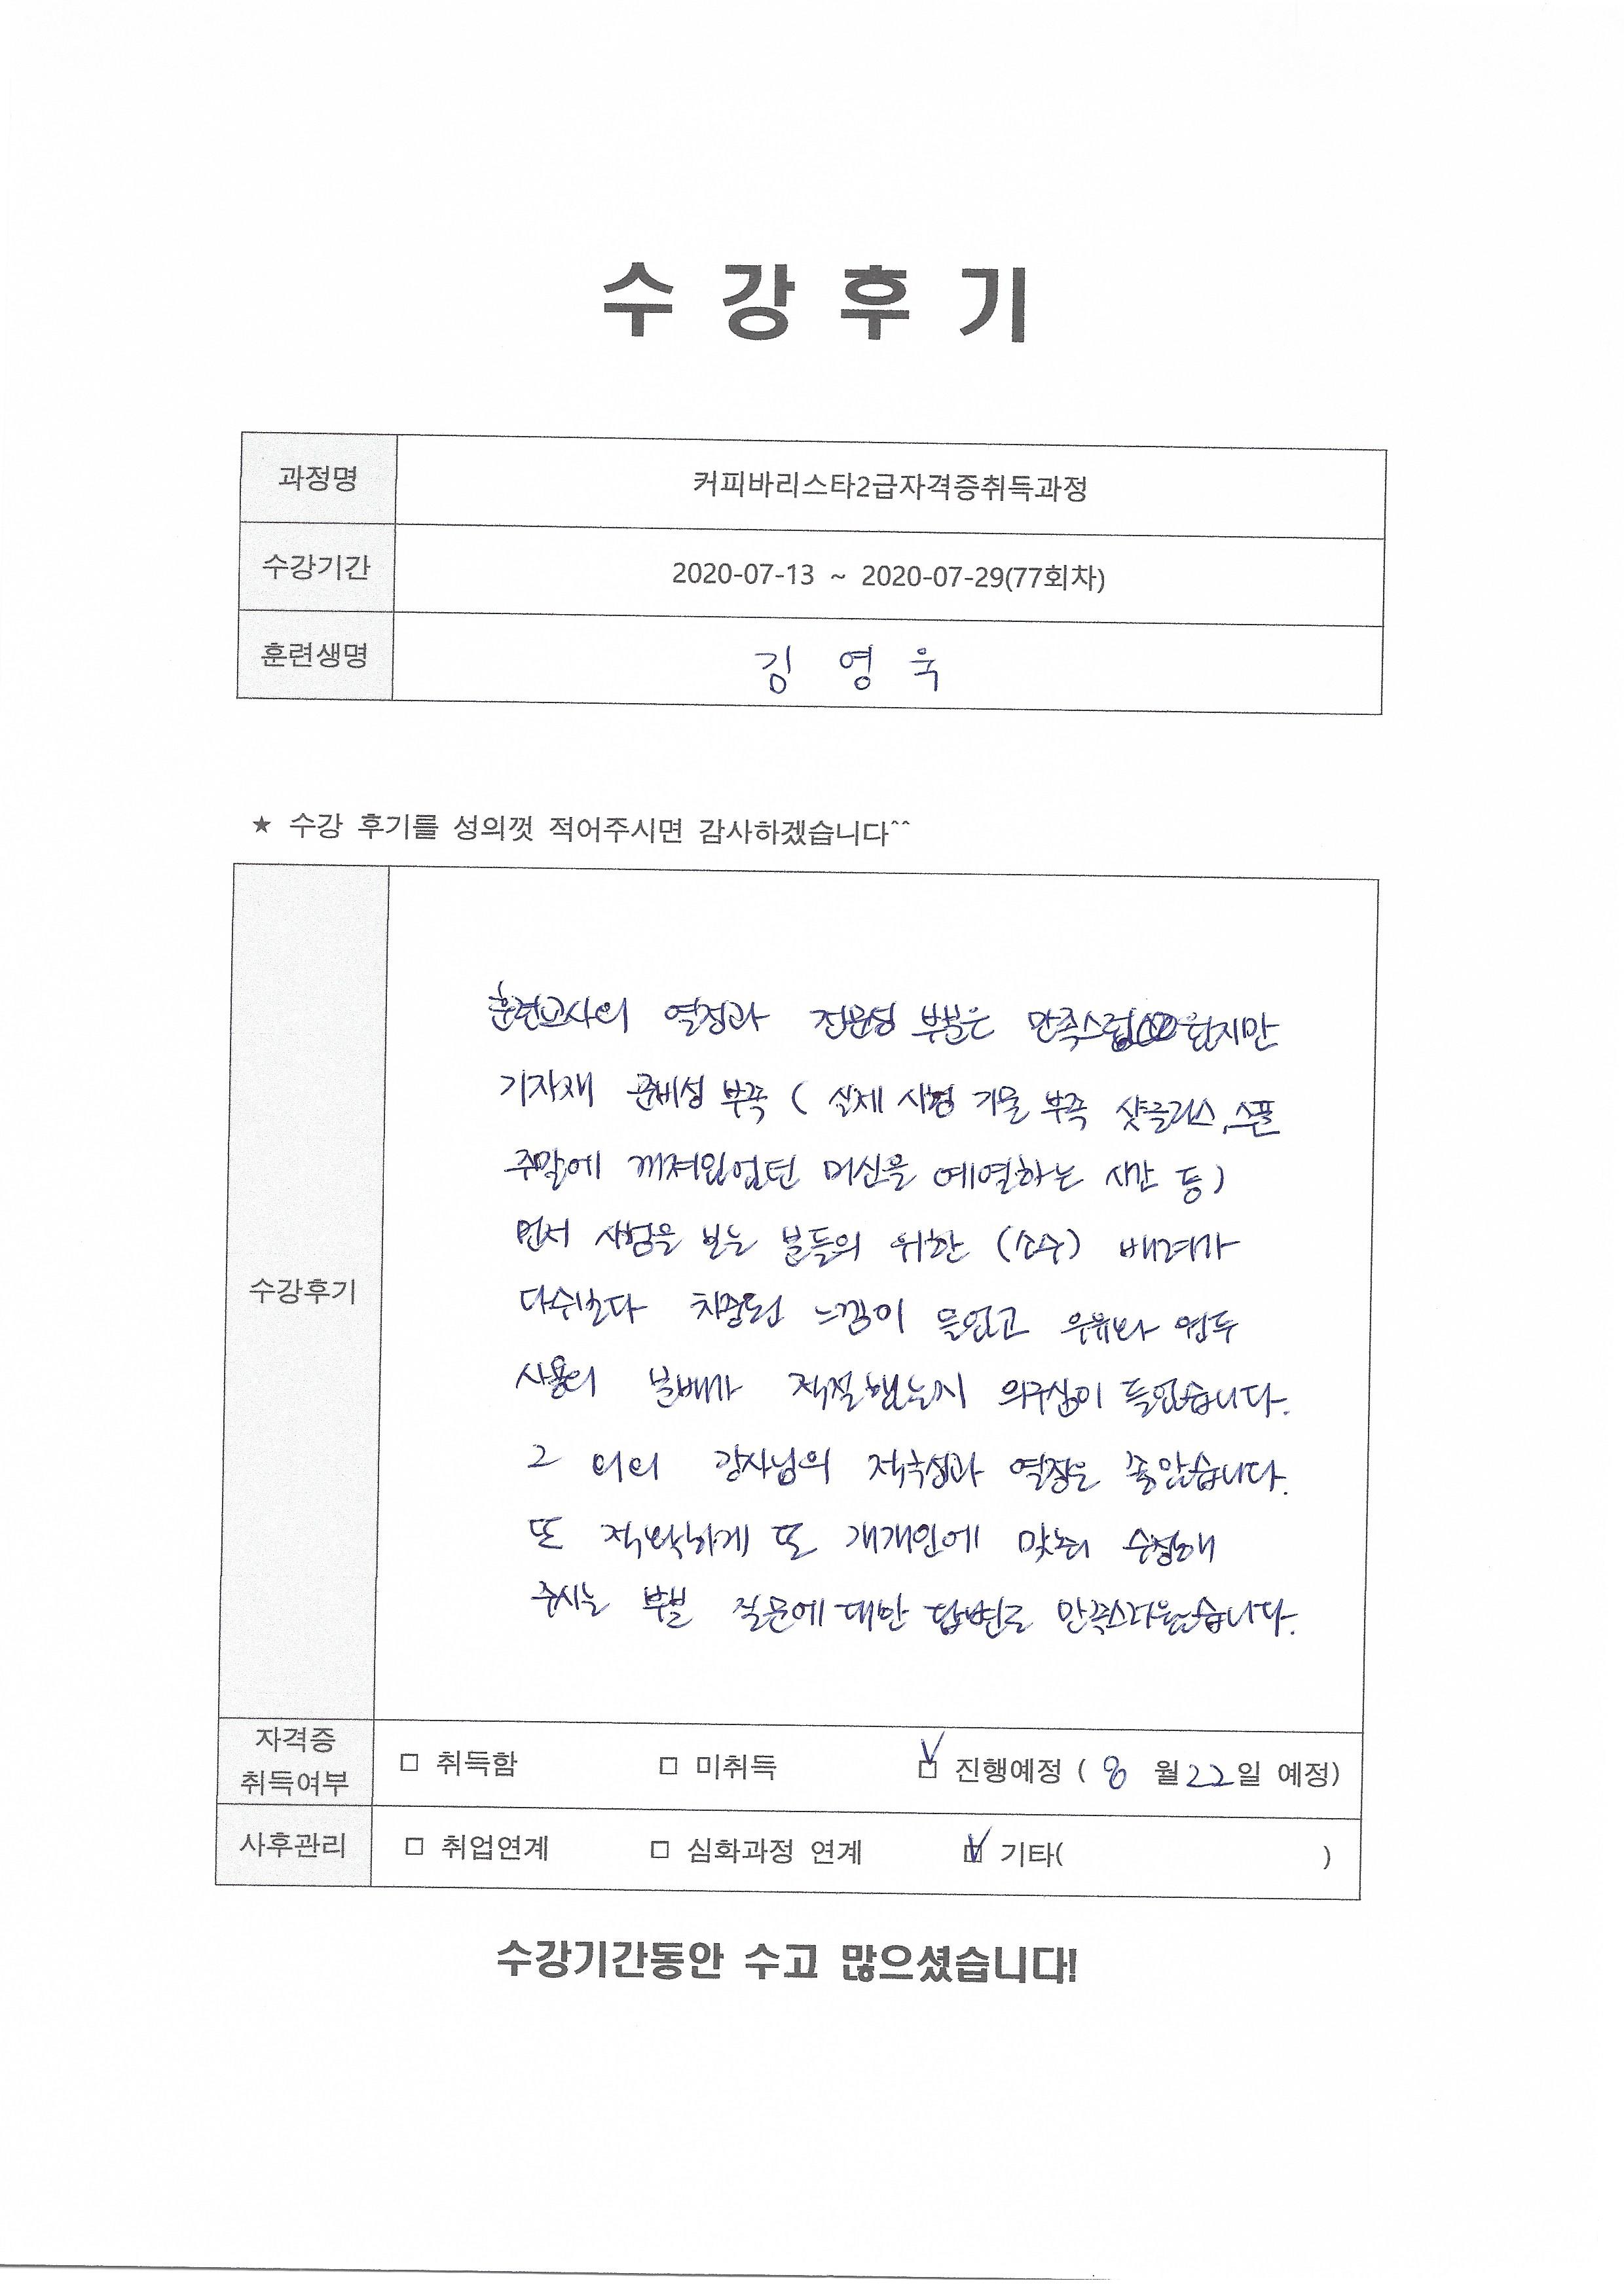 수 강 후 기
과정명 커피바리스타2급자격증취득과정
수강기간 2020-07-13 ~ 2020-07-29(77회차)
훈련생명 김 영 욱
★ 수강 후기를 성의껏 적어주시면 감사하겠습니다^^
수강후기
훈련교사의 열정과 전문성 부분은 만족스럽 웠지만
기자재 준비성 부족 ( 실제 시험 기물 부족 샷글라스, 스푼
주말에 꺼져있었던 머신을 예열하는 시간 등)
먼저 시험을 보는 분들의 위한 (소수) 배려가
다수보다 치중된 느낌이 들었고 우유와 원두
사용의 분배가 적절했는지 의구심이 들었습니다.
그 외의 강사님의 적극성과 열정은 좋았습니다.
또 적박하게 또 개개인에 맞춰 수정해
주시는 부분 질문에 대한 답변도 만족스러웠습니다.
자격증 취득여부 □ 취득함 □ 미취득 ☑ 진행예정 ( 8 월 22일 예정)
사후관리 □ 취업연계 □ 심화과정 연계 ☑ 기타( )
수강기간동안 수고 많으셨습니다!